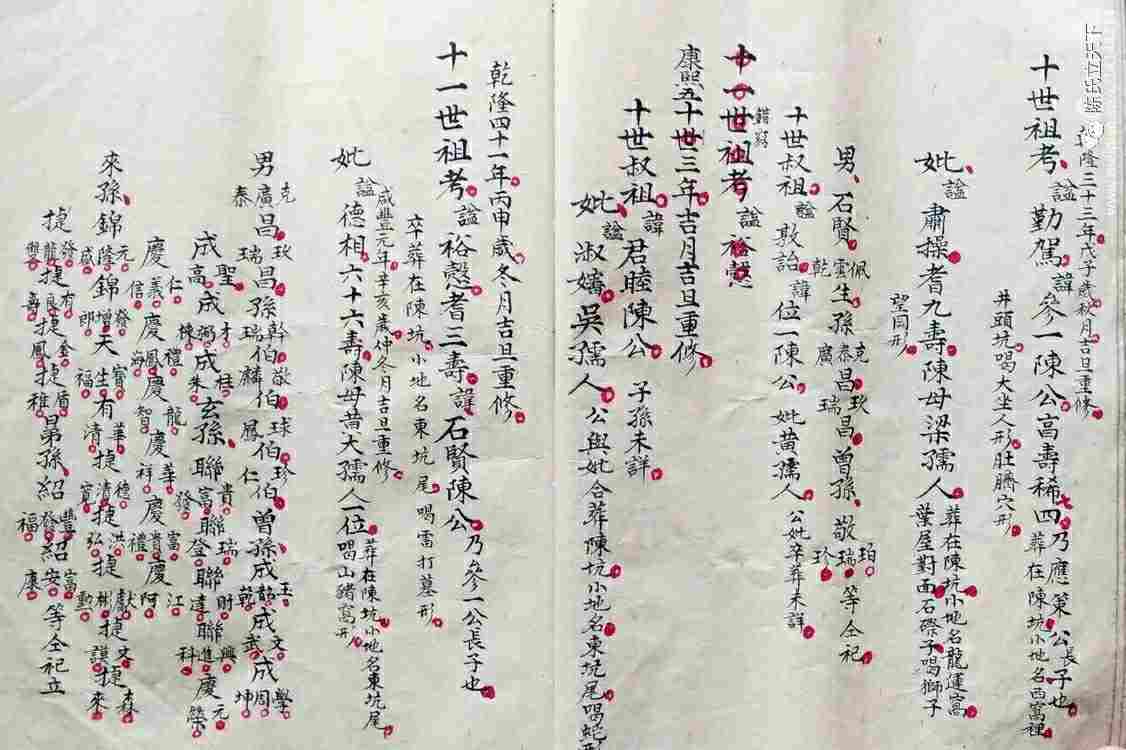 乾隆三十三年戊子歲秋月吉旦重修
十世祖考諡勤駕諱參一陳公高壽稀四乃應策公長子也葬在陳坑小地名西窩裡
井頭坑喝大坐人形肚臍穴形
妣諡肅操者九壽陳母梁孺人葬在陳坑小地名龍運窩葉屋對面石際子喝獅子
望同形
男石賢佩雲乾生孫克泰廣昌玫瑞昌曾孫敬珀瑞珍等仝祀
十世叔祖諡敦詒諱位一陳公妣黃孺人公妣卒葬未詳
錯寫
十一世祖考諡裕慤
康熙五十世三年吉月吉旦重修
十世叔祖諱君睦陳公子孫未詳
妣諡淑嬸吳孺人公與妣合葬陳坑小地名東坑尾喝蛇形
乾隆四十一年丙申歲冬月吉旦重修
十一世祖考諡裕慤者三壽諱石賢陳公乃參一公長子也
卒葬在陳坑小地名東坑尾喝雷打墓形
咸豐元年辛亥歲仲冬月吉旦重修
妣諡德相六十六壽陳母黃大孺人一位葬在陳坑小地名東坑尾喝山豬窩形
男克廣泰昌玫瑞昌孫幹瑞伯敬麟伯球鳳伯珍仁伯曾孫成玉韶乾成文武成學周坤
成聖高成才弼棟成桂朱玄孫聯貴富發聯瑞登聯財達聯興進科慶元榮
慶仁義信慶禮鳳海慶龍智慶華祥慶富貴禮慶江阿
來孫錦元隆盛錦發增郎天寶生福有華清捷德清寬捷洪弘捷獻彬勳捷文謨捷森來
捷發龍雙捷有良壽捷金鳳捷盾稚晜孫紹豐發福紹富安康等仝祀立
陳氏立天下